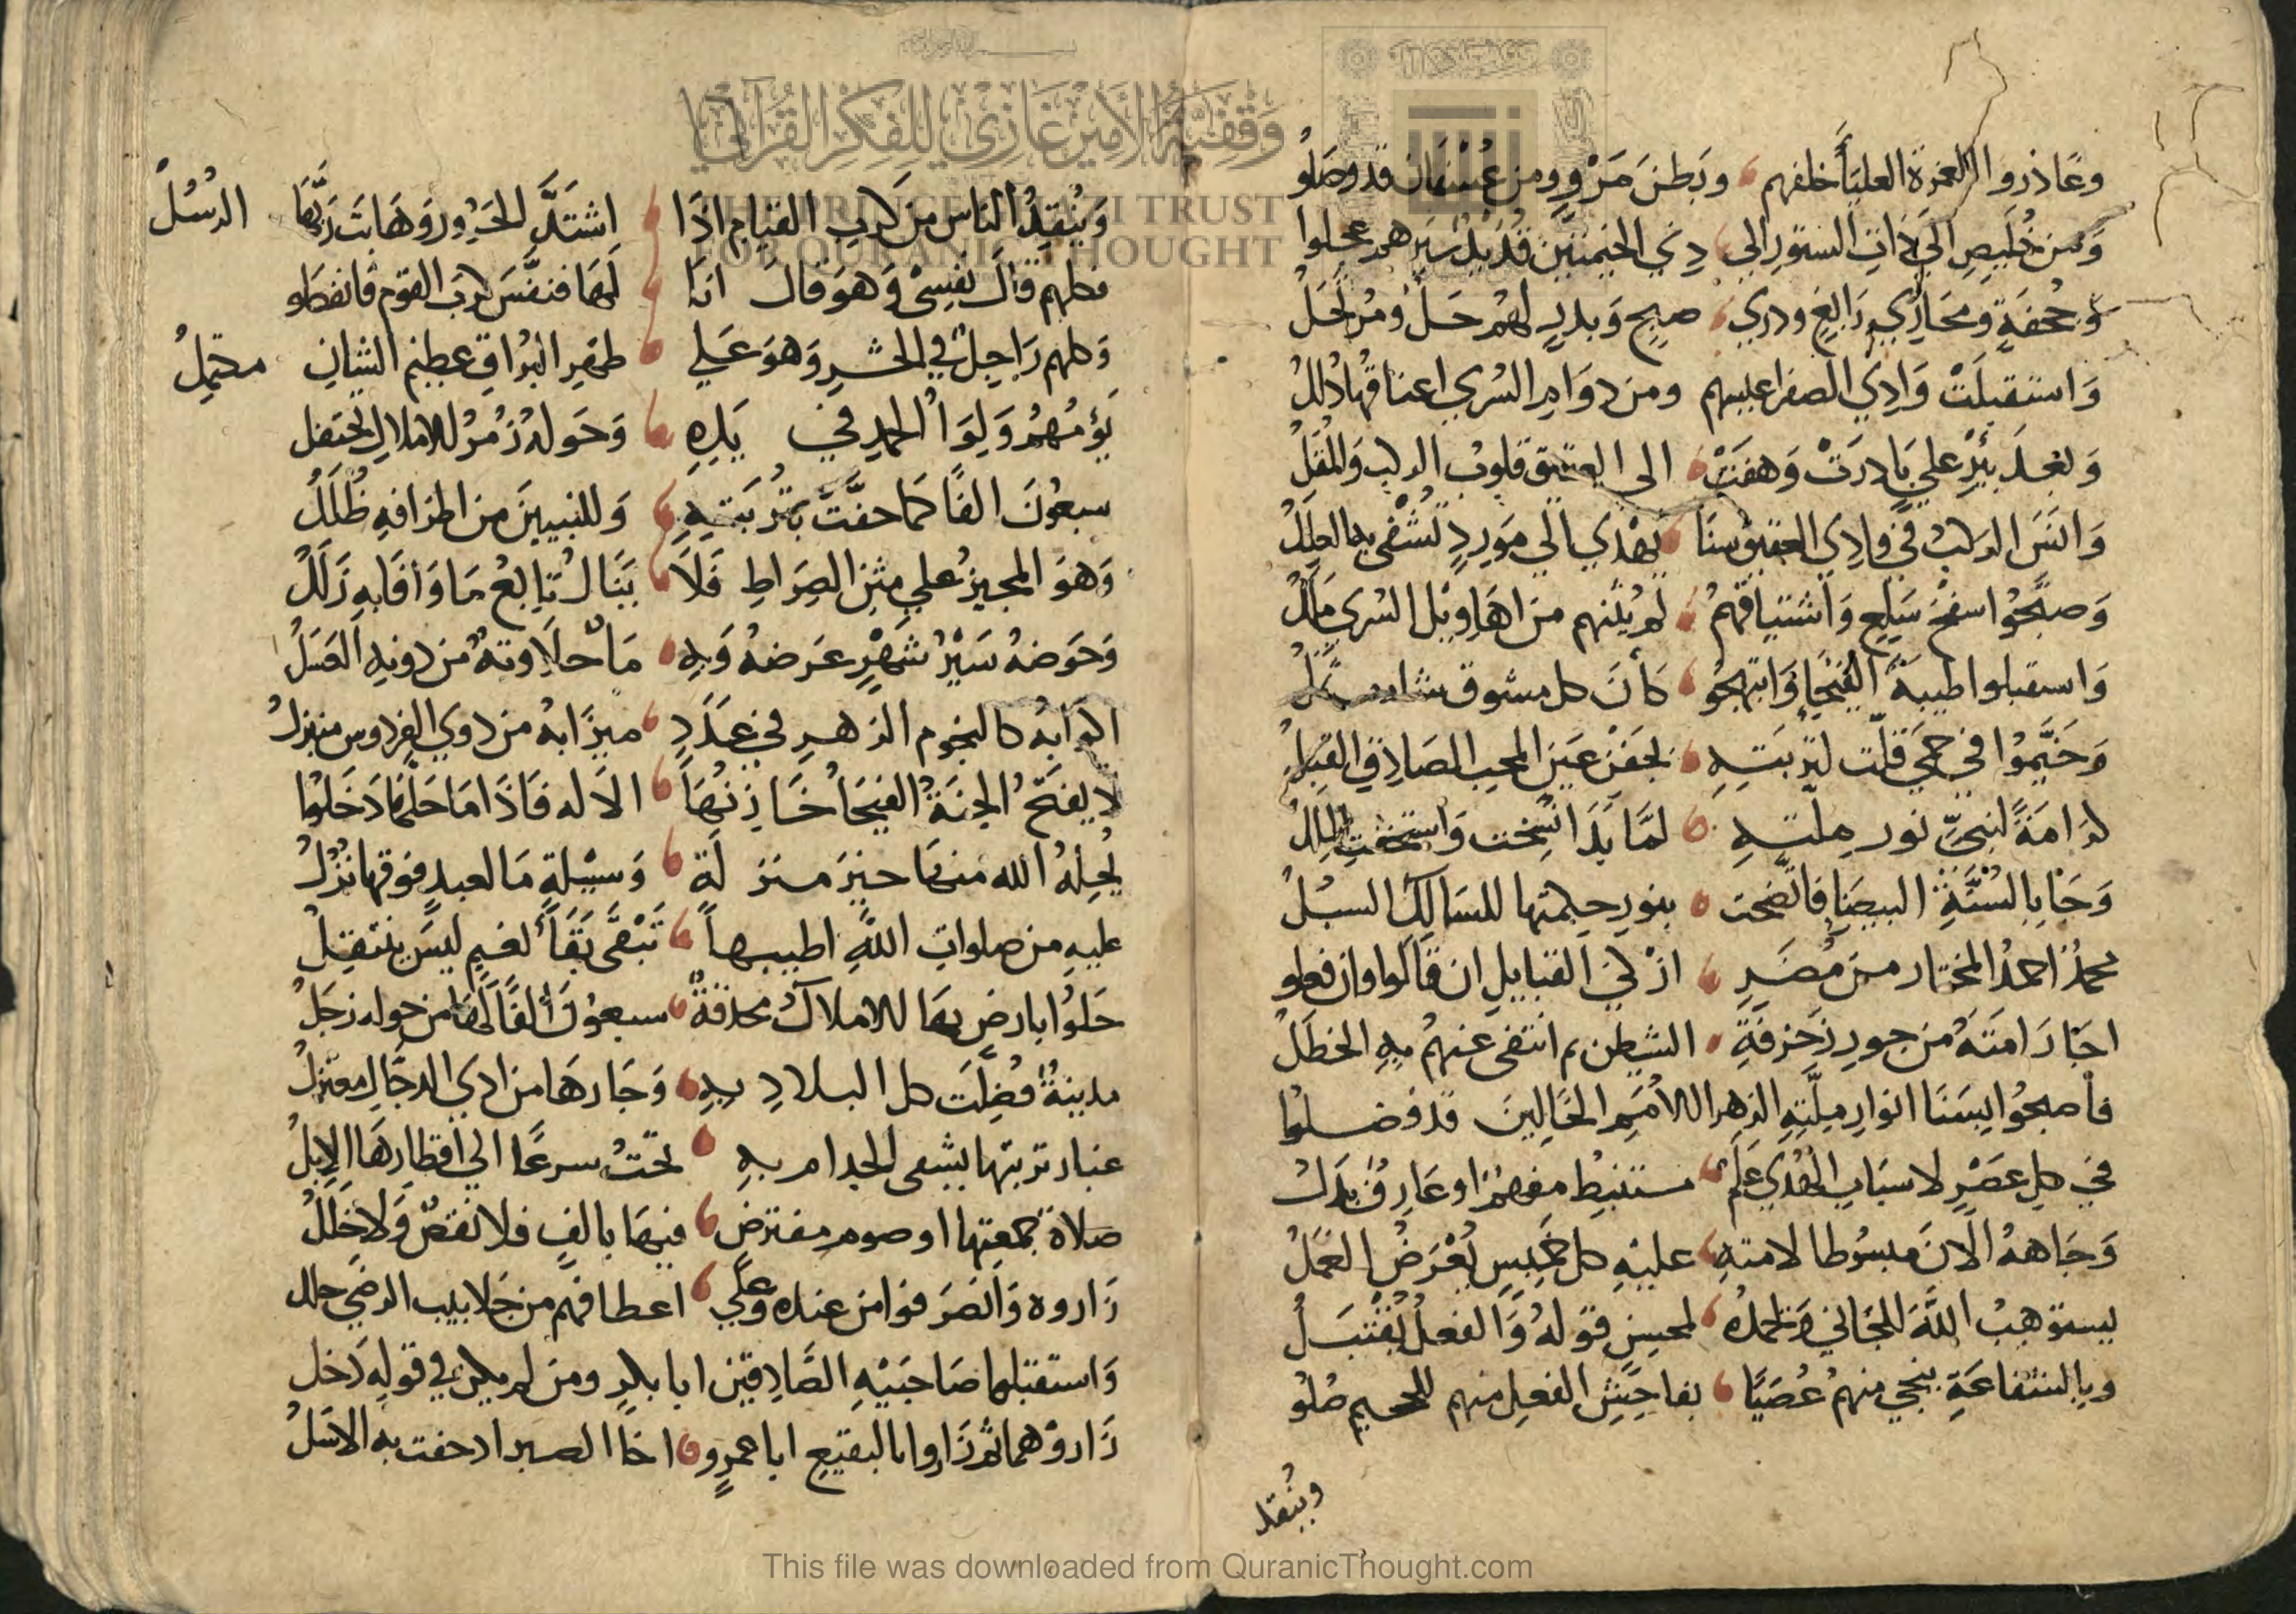 وغادروا العمرة العليا خلفهم وبطن مر ومن عسفان قد وصلوا
ومن خليص الى ذات الستور الى دني الخيمتين قد سيرهم عجلوا
وجحفة ومحاذي رابغ وذرى صبح وبدر لهم حل ومرتحل
واستقبلت وادي الصفرا عليهم ومن دوام السري اعناقها ذلل
وبعد بئر علي بادرت وهفت الى العتيق قلوب الركب والمقل
وانس الركب في وادي العقيق سنا يهدي الي مورد تشفى به العلل
وصبحوا سفح سلع واشتياقهم لم يثنهم من اهاويل السري ملل
واستقبلوا طيبة الفيحا وابتهجو كان كل مشوق شارب ثمل
وخيموا في حمي قلت لتربته بجفن عين المحب الصادق القبل
كرامة لنبي نور ملته لما بدا نسخت واستخفت الملل
وجا بالسنة البيضا فاتضحت بنور حكمتها للسالك السبل
محمد احمد المختار من مضر ازكي القبايل ان قالوا وان فعلو
اجار امته من جور زخرفة الشيطن ثم انتفى عنهم به الخطل
فاصبحوا بسنا انوار ملته الزهرا للامم الخالين قد فضلوا
في كل عصر لاسباب الهدي علم مستنبط مفهم او عارف بدل
وجاهه الان مبسوطا لامته عليه كل خميس يعرض العمل
يستوهب الله للجاني ويحمده لمحسن قوله والفعل يقتبل
وبالشفاعة ينجي منهم عصبا بفاحش الفعل منهم للجحيم صلو
وينقذ
وينقذ الناس من كرب القيام اذا اشتد الحرور وهابت ربها الرسل
فكلهم قال نفسي وهو قال انا لها فنفس كرب القوم فانفصلو
وكلهم راجل في الحشر وهو علي ظهر البراق عظيم الشان محتمل
يؤمهم ولوا الحمد في يده وحوله زمر للاملاك تحتفل
سبعون الفا كما حفت بتربته وللنبيين من اطرافه ظلل
وهو المجيز علي متن الصراط فلا ينال تابع ما وافا به زلل
وحوضه سير شهر عرضه وبه ما حلاوته من دونه العسل
اكوابه كالنجوم الزهر في عدد ميزابه من ذوي الفردوس منبزل
لا يفتح الجنة الفيحا خازنها الا له فاذا ما حلها دخلوا
يحله الله منها خير منزلة وسيلة ما لعبد فوقها نزل
عليه من صلوات الله اطيبها تبقى بقا نعيم ليس ينتقل
حلوا بارض بها للاملاك محدقة سبعون الفا لها من حوله زجل
مدينة فضلت كل البلاد به وجارها من اذي الدجال معتزل
غبار تربتها يشفى الجدام به تحث سرعا الي اقطارها الابل
صلاة جمعتها او صوم مفترض فيها بالف فلا نقص ولا خلل
زاروه وانصرفوا من عنده وعلي اعطافهم من جلابيب الرضي حلل
واستقبلها صاحبيه الصادقين ابا بكر ومن لم يكن في قوله دخل
زاروهما ثم زاروا بالبقيع ابا عمرو اخا الصبر اذ حفت به الاسل
This file was downloaded from QuranicThought.com